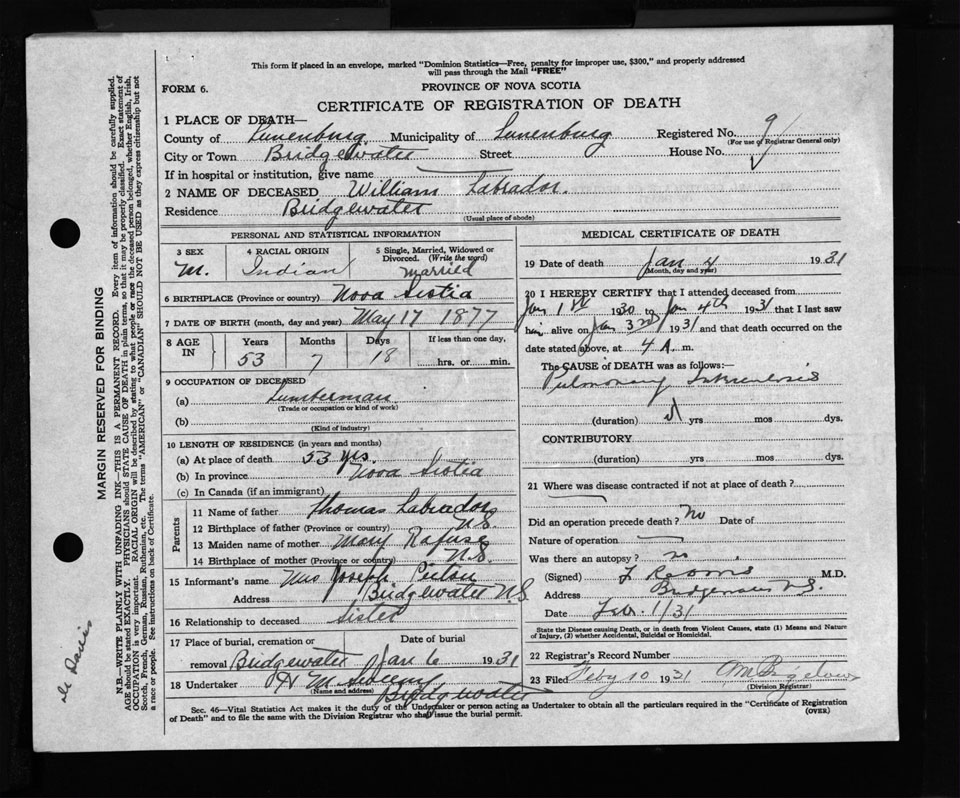 This form if placed in an envelope, marked "Dominion Statistics—Free, penalty for improper use, $300," and properly addressed
will pass through the Mail "FREE"
FORM 6.
PROVINCE OF NOVA SCOTIA
CERTIFICATE OF REGISTRATION OF DEATH
1 PLACE OF DEATH—
County of Lunenburg Municipality of Lunenburg Registered No. 9
(For use of Registrar General only)
City or Town Bridgewater Street House No.
If in hospital or institution, give name
2 NAME OF DECEASED William Labrador.
Residence Bridgewater
(Usual place of abode)
PERSONAL AND STATISTICAL INFORMATION
3 SEX 4 RACIAL ORIGIN 5 Single, Married, Widowed or
Divorced. (Write the word)
M. Indian Married
6 BIRTHPLACE (Province or country) Nova Scotia
7 DATE OF BIRTH (month, day and year) May 17 1877
8 AGE IN Years Months Days If less than one day,
53 7 18 hrs. or min.
9 OCCUPATION OF DECEASED
(a) Lumberman
(Trade or occupation or kind of work)
(b)
(Kind of industry)
10 LENGTH OF RESIDENCE (in years and months)
(a) At place of death 53 yrs
(b) In province Nova Scotia
(c) In Canada (if an immigrant)
Parents
11 Name of father Thomas Labrador
12 Birthplace of father (Province or country) N.S.
13 Maiden name of mother Mary Rafuse
14 Birthplace of mother (Province or country) N.S.
15 Informant's name Mrs Joseph
Address Bridgewater N.S.
16 Relationship to deceased Sister
17 Place of burial, cremation or Date of burial
removal Bridgewater Jan 6 1931
18 Undertaker H M
(Name and address) Bridgewater
MEDICAL CERTIFICATE OF DEATH
19 Date of death Jan 4 1931
(Month, day and year)
20 I HEREBY CERTIFY that I attended deceased from
Jan 1st 1930 to Jan 4th 1931 that I last saw
him alive on Jan 3rd 1931 and that death occurred on
date stated above, at 4 A. m.
The CAUSE OF DEATH was as follows:—
Pulmonary Tuberculosis
(duration) yrs mos dys.
CONTRIBUTORY
(duration) yrs mos dys.
21 Where was disease contracted if not at place of death?
Did an operation precede death? No Date of
Nature of operation
Was there an autopsy? no
(Signed) M.D.
Address Bridgewater N.S.
Date Feb. 1/31
State the Disease causing Death, or in death from Violent Causes, state (1) Means and Nature
of Injury, (2) whether Accidental, Suicidal or Homicidal.
22 Registrar's Record Number
23 Filed Feby 10 1931
(Division Registrar)
Sec. 46—Vital Statistics Act makes it the duty of the Undertaker or person acting as Undertaker to obtain all the particulars required in the "Certificate of Registration
of Death" and to file the same with the Division Registrar who shall issue the burial permit.
(OVER)
MARGIN RESERVED FOR BINDING
N.B.—WRITE PLAINLY WITH UNFADING INK—THIS IS A PERMANENT RECORD. Every item of information should be carefully supplied.
AGE should be stated EXACTLY. PHYSICIANS should STATE CAUSE OF DEATH in plain terms, so that it may be properly classified. Exact statement of
OCCUPATION is very important. RACIAL ORIGIN will be described by stating to what people or race the deceased person belonged, whether English, Irish,
Scotch, French, German, Russian, Ruthenian, etc. The terms "AMERICAN" or "CANADIAN" SHOULD NOT BE USED as they express citizenship but not
a race or people. See instructions on back of Certificate.